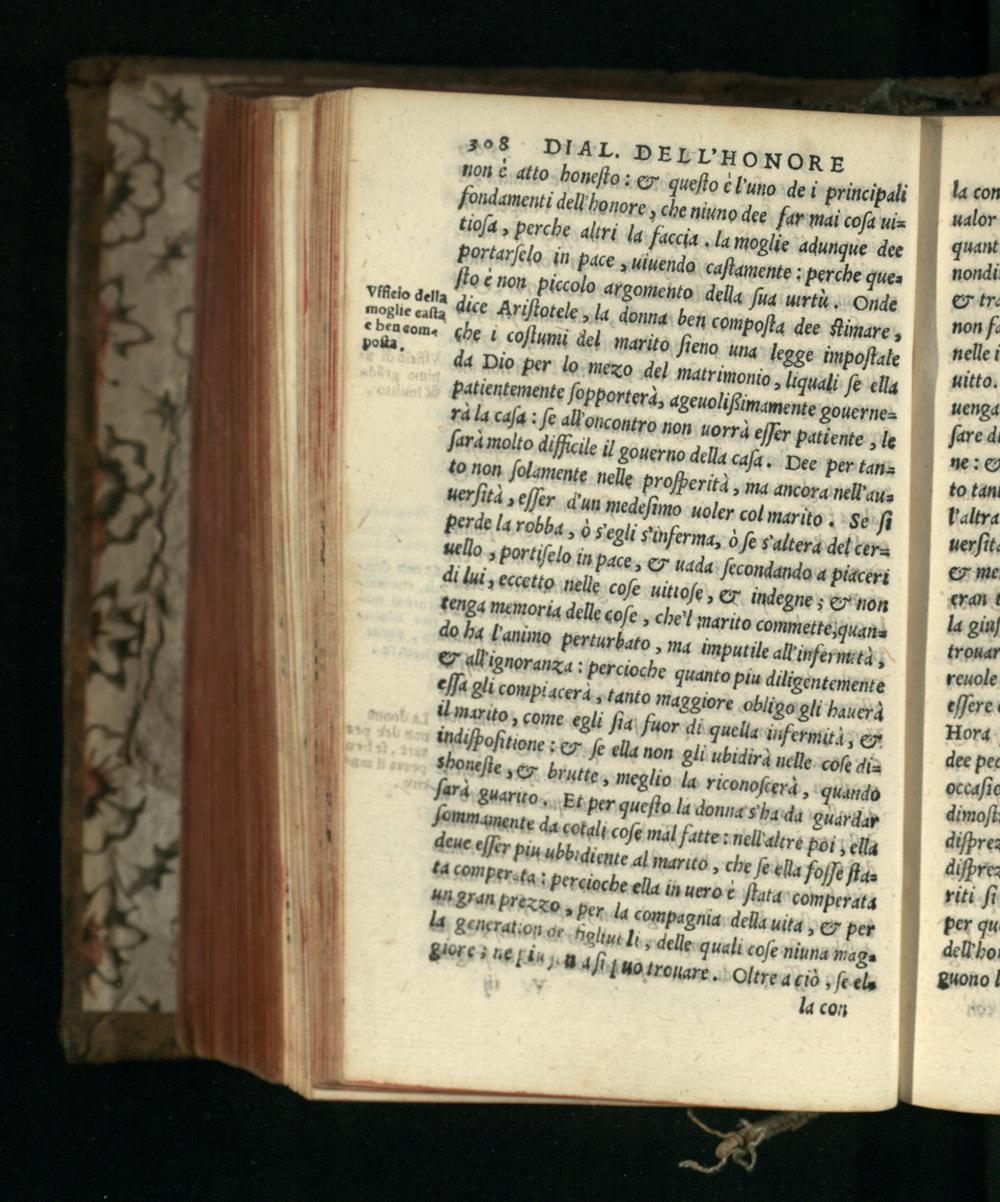 308 DIAL. DELL'HONORE
non è atto honeſto: & queſto è l'uno de i principali
fondamenti dell'honore, che niuno dee far mai coſa ui=
tioſa, perche altri la faccia. la moglie adunque dee
portarſelo in pace, uiuendo caſtamente: perche que=
ſto è non piccolo argomento della ſua uirtù. Onde
dice Ariſtotele, la donna ben compoſta dee ſtimare,
che i coſtumi del marito ſieno una legge impoſtale
da Dio per lo mezo del matrimonio, liquali ſe ella
patientemente ſopporterà, ageuolißimamente gouerne=
rà la caſa: ſe all'oncontro non uorrà eſſer patiente, le
ſarà molto difficile il gouerno della caſa. Dee per tan=
to non ſolamente nelle proſperità, ma ancora nell'au=
uerſità, eſſer d'un medeſimo uoler col marito. Se ſi
perde la robba, ò s'egli s'inferma, ò ſe s'altera del cer=
uello, portiſelo in pace, & uada ſecondando a piaceri
di lui, eccetto nelle coſe uitioſe, & indegne; & non
tenga memoria delle coſe, che'l marito commette, quan=
do ha l'animo perturbato, ma imputile all'infermità,
& all'ignoranza: percioche quanto piu diligentemente
eſſa gli compiacerà, tanto maggiore obligo gli hauerà
il marito, come egli ſia fuor di quella infermità, &
indiſpoſitione: & ſe ella non gli ubidirà nelle coſe di=
shoneſte, & brutte, meglio la riconoſcerà, quando
ſarà guarito. Et per queſto la donna s'ha da guardar
ſommamente da cotali coſe mal fatte: nell'altre poi, ella
deue eſſer piu ubbidiente al marito, che ſe ella foſſe ſta=
ta comperata: percioche ella in uero è ſtata comperata
un gran prezzo, per la compagnia della uita, & per
la generation de figliuoli, delle quali coſe niuna mag=
giore; ne piu ſi puo trouare. Oltre a ciò, ſe el=
la con
Vfficio della
moglie caſta
e ben com=
poſta.
la con
ualor
quant
nondi
& tra
non fa
nelle i
uitto.
uenga
ſare di
ne: &
to tant
l'altra
uerſita
& me
eran t
la giuſ
trouar
reuole
eſſere
Hora
dee pec
occaſio
dimoſt
diſprez
diſprez
riti ſi
per qu
dell'ho
guono l